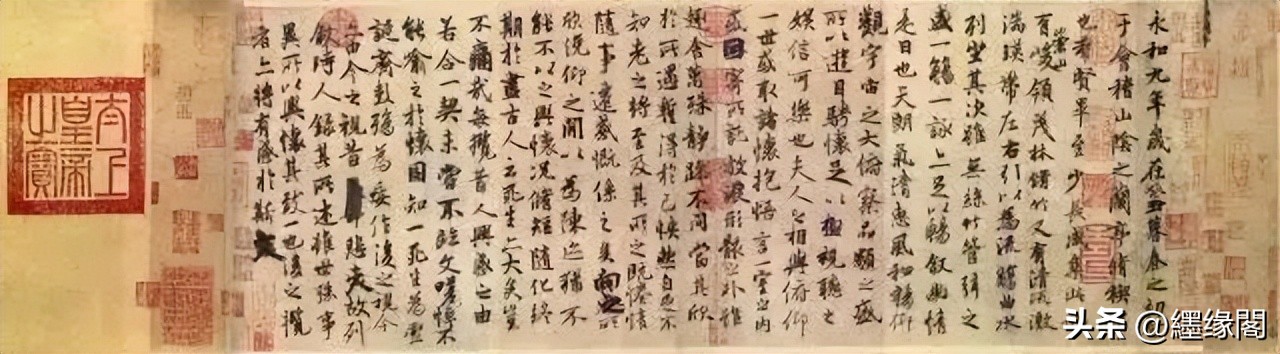 永和九年歲在癸丑暮春之初
于會稽山陰之蘭亭脩禊
也羣賢畢至少長咸集此
有崇山峻領茂林脩竹又有清流激
湍暎帶左右引以為流觴曲水
列坐其次雖無絲竹管弦之
盛一觴一詠亦足以暢敘幽情
是日也天朗氣清惠風和暢仰
觀宇宙之大俯察品類之盛
所以遊目騁懷足以極視聽之
娛信可樂也夫人之相與俯仰
一世或取諸懷抱悟言一室之內
或因寄所託放浪形骸之外雖
趣舍萬殊靜躁不同當其欣
於所遇暫得於己快然自足不
知老之將至及其所之既惓情
隨事遷感慨係之矣向之所
欣俛仰之閒以為陳迹猶不
能不以之興懷況脩短隨化終
期於盡古人云死生亦大矣豈
不痛哉每攬昔人興感之由
若合一契未嘗不臨文嗟悼不
能喻之於懷固知一死生為虛
誕齊彭殤為妄作後之視今
亦由今之視昔悲夫故列
敘時人錄其所述雖世殊事
異所以興懷其致一也後之攬
者亦將有感於斯文
太上
皇帝
之寶
头条 @纆缘閣